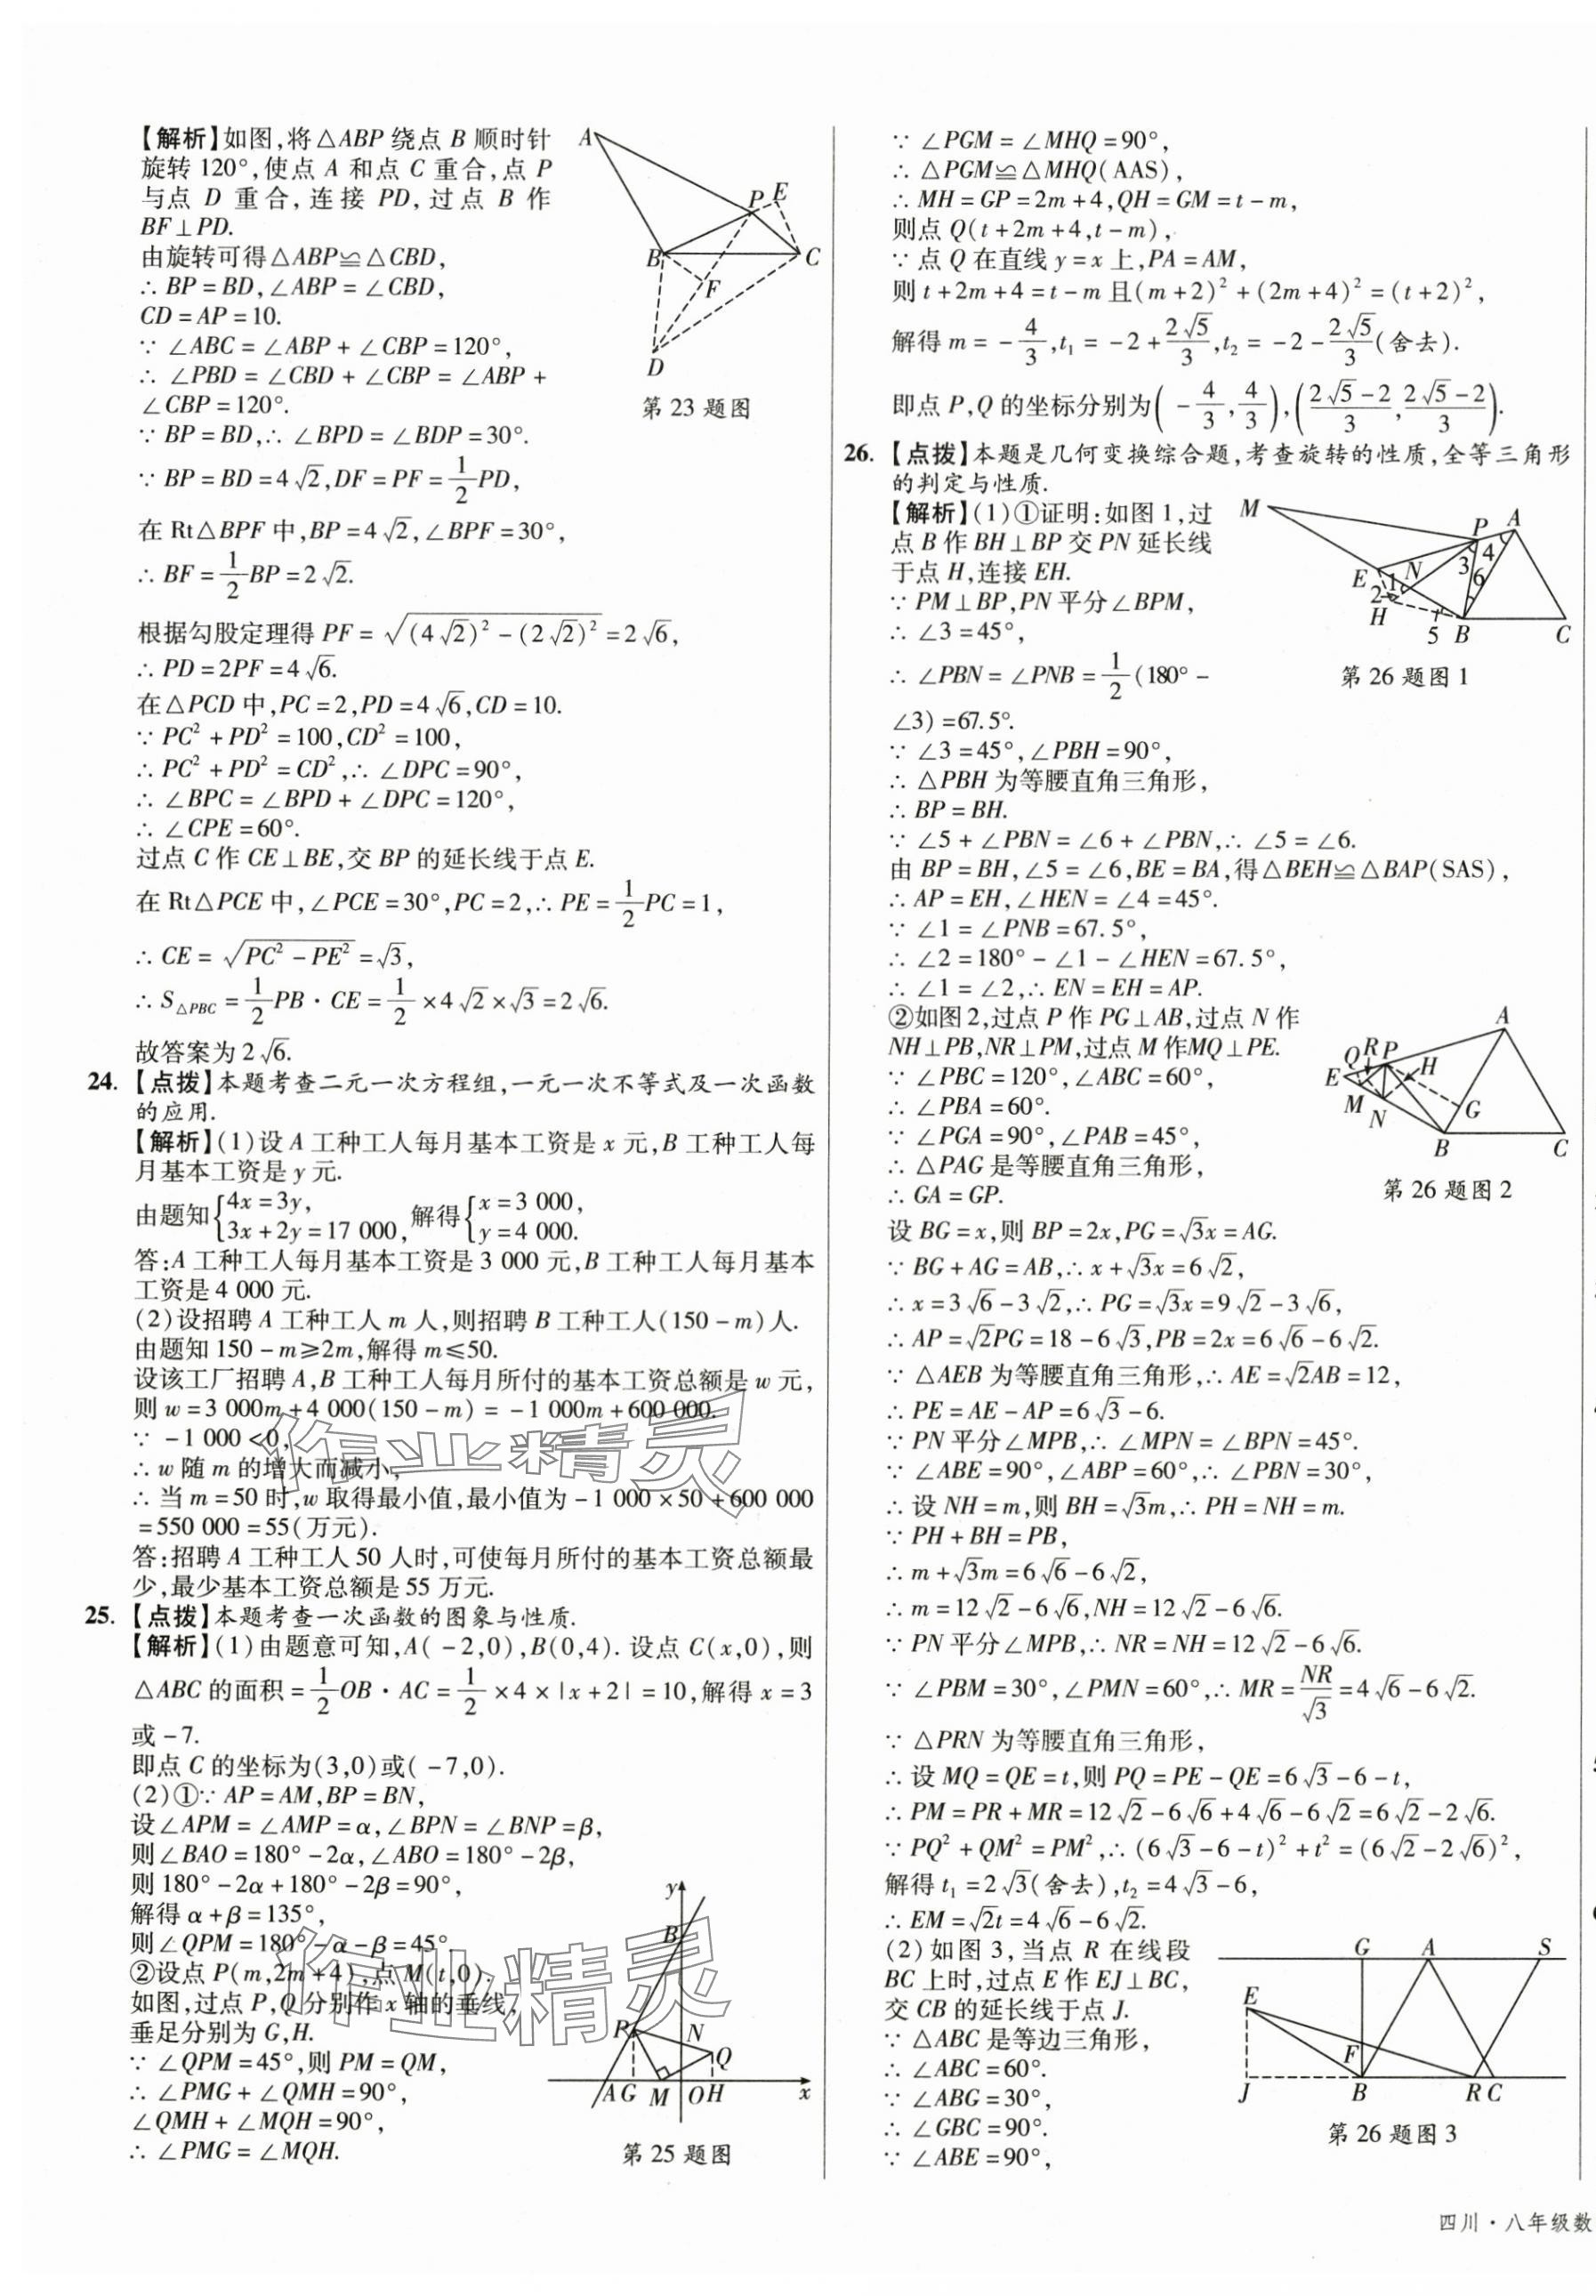 【解析】如图,将△ABP 绕点 B 顺时针
旋转 120°,使点 A 和点 C 重合,点 P
与点 D 重合,连接 PD,过点 B 作
BF⊥PD.
由旋转可得△ABP≌△CBD,
∴ BP=BD,∠ABP=∠CBD,
CD=AP=10.
∵ ∠ABC=∠ABP+∠CBP=120°,
∴ ∠PBD=∠CBD+∠CBP=∠ABP+
∠CBP=120°.
∵ BP=BD,∴ ∠BPD=∠BDP=30°.
∵ BP=BD=4√2,DF=PF=1/2PD,
在 Rt△BPF 中,BP=4√2,∠BPF=30°,
∴ BF=1/2BP=2√2.
根据勾股定理得 PF=√((4√2)²-(2√2)²)=2√6,
∴ PD=2PF=4√6.
在△PCD 中,PC=2,PD=4√6,CD=10.
∵ PC²+PD²=100,CD²=100,
∴ PC²+PD²=CD²,∴ ∠DPC=90°,
∴ ∠BPC=∠BPD+∠DPC=120°,
∴ ∠CPE=60°.
过点 C 作 CE⊥BE,交 BP 的延长线于点 E.
在 Rt△PCE 中,∠PCE=30°,PC=2,∴ PE=1/2PC=1,
∴ CE=√(PC²-PE²)=√3,
∴ S△PBC=1/2PB·CE=1/2×4√2×√3=2√6.
故答案为 2√6.
A
P
E
B
C
F
D
第 23 题图
24. 【点拨】本题考查二元一次方程组,一元一次不等式及一次函数
的应用.
【解析】(1)设 A 工种工人每月基本工资是 x 元,B 工种工人每
月基本工资是 y 元.
由题知{4x=3y, 3x+2y=17 000, 解得{x=3 000, y=4 000.
答:A 工种工人每月基本工资是 3 000 元,B 工种工人每月基本
工资是 4 000 元.
(2)设招聘 A 工种工人 m 人,则招聘 B 工种工人(150-m)人.
由题知 150-m≥2m,解得 m≤50.
设该工厂招聘 A,B 工种工人每月所付的基本工资总额是 w 元,
则 w=3 000m+4 000(150-m)=-1 000m+600 000.
∵ -1 000<0,
∴ w 随 m 的增大而减小,
∴ 当 m=50 时,w 取得最小值,最小值为-1 000×50+600 000
=550 000=55(万元).
答:招聘 A 工种工人 50 人时,可使每月所付的基本工资总额最
少,最少基本工资总额是 55 万元.
作业精灵
25. 【点拨】本题考查一次函数的图象与性质.
【解析】(1)由题意可知,A(-2,0),B(0,4). 设点 C(x,0),则
△ABC 的面积=1/2OB·AC=1/2×4×|x+2|=10,解得 x=3
或-7.
即点 C 的坐标为(3,0)或(-7,0).
(2)①∵ AP=AM,BP=BN,
设∠APM=∠AMP=α,∠BPN=∠BNP=β,
则∠BAO=180°-2α,∠ABO=180°-2β,
则 180°-2α+180°-2β=90°,
解得 α+β=135°,
则∠QPM=180°-α-β=45°.
②设点 P(m,2m+4),点 M(t,0).
如图,过点 P,Q 分别作 x 轴的垂线,
垂足分别为 G,H.
∵ ∠QPM=45°,则 PM=QM,
∴ ∠PMG+∠QMH=90°,
∠QMH+∠MQH=90°,
∴ ∠PMG=∠MQH.
作业精灵
y
B
P
N
Q
A G M O H x
第 25 题图
∵ ∠PGM=∠MHQ=90°,
∴ △PGM≌△MHQ(AAS),
∴ MH=GP=2m+4,QH=GM=t-m,
则点 Q(t+2m+4,t-m),
∵ 点 Q 在直线 y=x 上,PA=AM,
则 t+2m+4=t-m 且(m+2)²+(2m+4)²=(t+2)²,
解得 m=-4/3,t₁=-2+2√5/3,t₂=-2-2√5/3(舍去).
即点 P,Q 的坐标分别为(-4/3,4/3),((2√5-2)/3,(2√5-2)/3).
26. 【点拨】本题是几何变换综合题,考查旋转的性质,全等三角形
的判定与性质.
【解析】(1)①证明:如图 1,过
点 B 作 BH⊥BP 交 PN 延长线
于点 H,连接 EH.
∵ PM⊥BP,PN 平分∠BPM,
∴ ∠3=45°,
∴ ∠PBN=∠PNB=1/2(180°-
∠3)=67.5°.
∵ ∠3=45°,∠PBH=90°,
∴ △PBH 为等腰直角三角形,
∴ BP=BH.
∵ ∠5+∠PBN=∠6+∠PBN,∴ ∠5=∠6.
由 BP=BH,∠5=∠6,BE=BA,得△BEH≌△BAP(SAS),
∴ AP=EH,∠HEN=∠4=45°.
∵ ∠1=∠PNB=67.5°,
∴ ∠2=180°-∠1-∠HEN=67.5°,
∴ ∠1=∠2,∴ EN=EH=AP.
M
P A
4
E 1 N 3 6
2
H
5 B C
第 26 题图 1
②如图 2,过点 P 作 PG⊥AB,过点 N 作
NH⊥PB,NR⊥PM,过点 M 作MQ⊥PE.
∵ ∠PBC=120°,∠ABC=60°,
∴ ∠PBA=60°.
∵ ∠PGA=90°,∠PAB=45°,
∴ △PAG 是等腰直角三角形,
∴ GA=GP.
A
Q R P H
E
M N G
B C
第 26 题图 2
设 BG=x,则 BP=2x,PG=√3x=AG.
∵ BG+AG=AB,∴ x+√3x=6√2,
∴ x=3√6-3√2,∴ PG=√3x=9√2-3√6,
∴ AP=√2PG=18-6√3,PB=2x=6√6-6√2.
∵ △AEB 为等腰直角三角形,∴ AE=√2AB=12,
∴ PE=AE-AP=6√3-6.
∵ PN 平分∠MPB,∴ ∠MPN=∠BPN=45°.
∵ ∠ABE=90°,∠ABP=60°,∴ ∠PBN=30°,
∴ 设 NH=m,则 BH=√3m,∴ PH=NH=m.
∵ PH+BH=PB,
∴ m+√3m=6√6-6√2,
∴ m=12√2-6√6,NH=12√2-6√6.
∵ PN 平分∠MPB,∴ NR=NH=12√2-6√6.
∵ ∠PBM=30°,∠PMN=60°,∴ MR=NR/√3=4√6-6√2.
∵ △PRN 为等腰直角三角形,
∴ 设 MQ=QE=t,则 PQ=PE-QE=6√3-6-t,
∴ PM=PR+MR=12√2-6√6+4√6-6√2=6√2-2√6.
∵ PQ²+QM²=PM²,∴ (6√3-6-t)²+t²=(6√2-2√6)²,
解得 t₁=2√3(舍去),t₂=4√3-6,
∴ EM=√2t=4√6-6√2.
(2)如图 3,当点 R 在线段
BC 上时,过点 E 作 EJ⊥BC,
交 CB 的延长线于点 J.
∵ △ABC 是等边三角形,
∴ ∠ABC=60°.
∵ ∠ABG=30°,
∴ ∠GBC=90°.
∵ ∠ABE=90°,
G A S
E
F
J B R C
第 26 题图 3
四川·八年级数